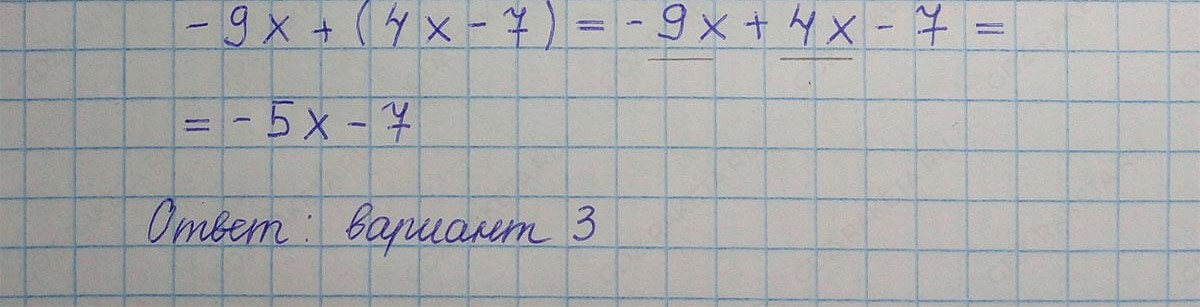 -9x + (4x - 7) = -9x + 4x - 7 =
= -5x - 7
Ответ: вариант 3